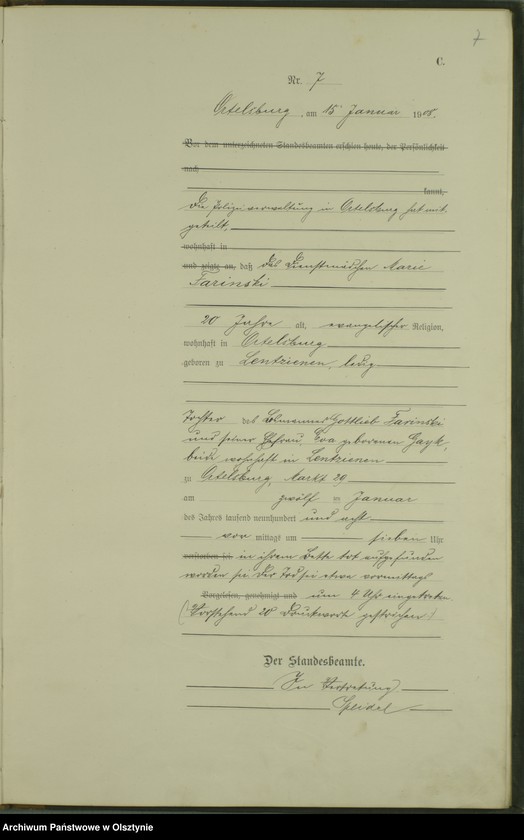 7
C.
Nr. 7
Ortelsburg, am 15 Januar 1908.
Vor dem unterzeichneten Standesbeamten erschien heute, der Persönlichkeit
nach
kannt,
Die Polizeiverwaltung in Ortelsburg hat mit
geteilt,
wohnhaft in
und zeigte an, daß das Dienstmädchen Marie
Farinski
20 Jahre alt, evangelischer Religion,
wohnhaft in Ortelsburg
geboren zu Lentzienen, ledig
Tochter des Gottlieb Farinski
und seiner Ehefrau Eva geborenen Gayk,
beide wohnhaft in Lentzienen
zu Ortelsburg, Markt 29
am zwölf ten Januar
des Jahres tausend neunhundert und acht
vor mittags um sieben Uhr
verstorben sei, in ihrem Bette tot aufgefunden
worden sei der Tod sei etwa vormittags
Vorgelesen, genehmigt und um 4 Uhr eingetreten
(Vorstehend 20 Druckworte gestrichen)
Der Standesbeamte.
In Vertretung
Archiwum Państwowe w Olsztynie